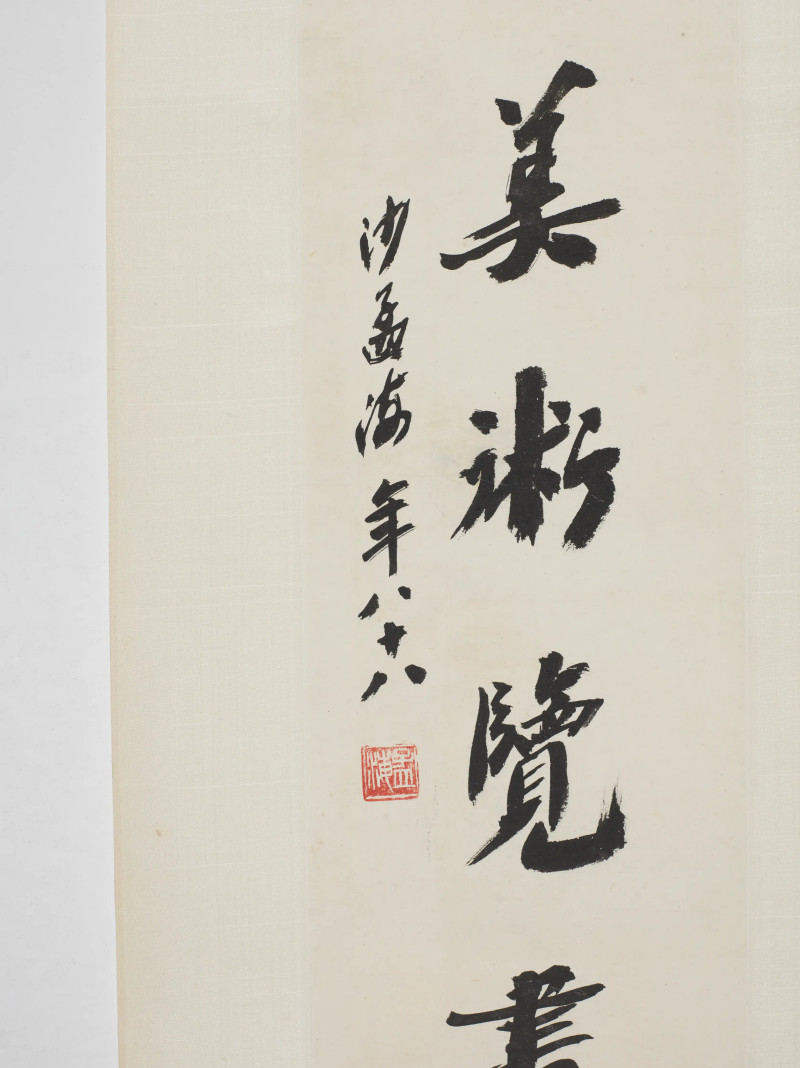 美術覽書
沙孟海年八十八
孟海